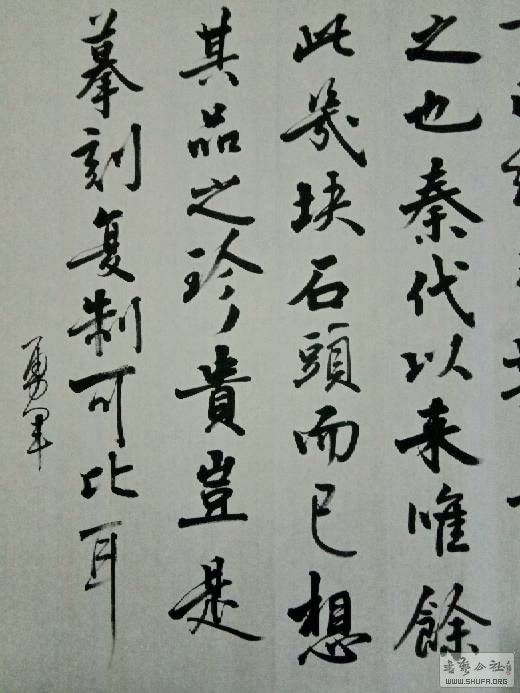 之也秦代以来唯餘
此幾块石頭而已想
其品之珍貴豈是
摹刻复制可比耳
勇军
書藝公社
WWW.SHUFA.ORG